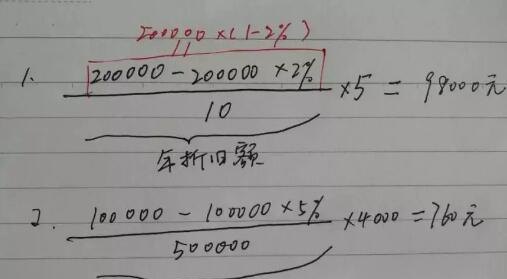 200000×(1-2%)
1. 200000-200000×2%
10
×5=98000元
年折旧额
2. 100000-100000×5%
500000
×4000=760元